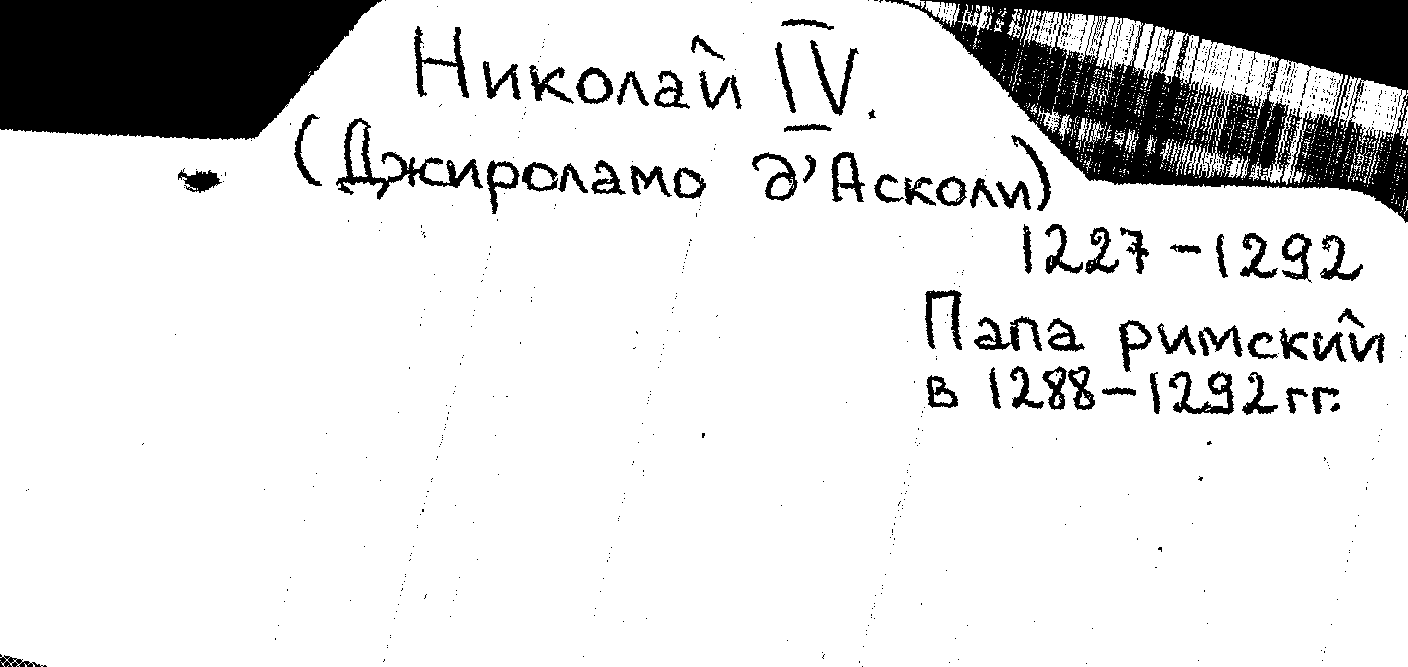 Николай IV.
(Джироламо д'Асколи)
1227-1292
Папа римский
в 1288-1292гг.